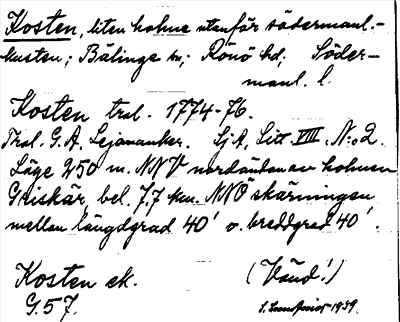 Kosten, liten holme utanför södermanl.-
kusten; Bälinge sn; Rönö hd; Söder-
manl. l.
Kosten trol. 1774-76.
Trol. G. A. Lejonanker. Sj A, Litt. VIII. No: 2.
Läge 250 m. NNV nordändan av holmen
Griskär, bel. 7.7 km. NNO skärningen
mellan längdgrad 40' o. breddgrad 40'.
Kosten ek. (Vänd!)
G. 57. 1939.